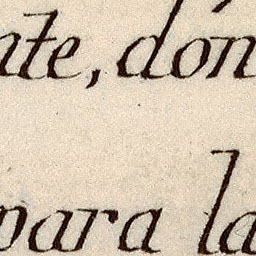 nte, dón
para la